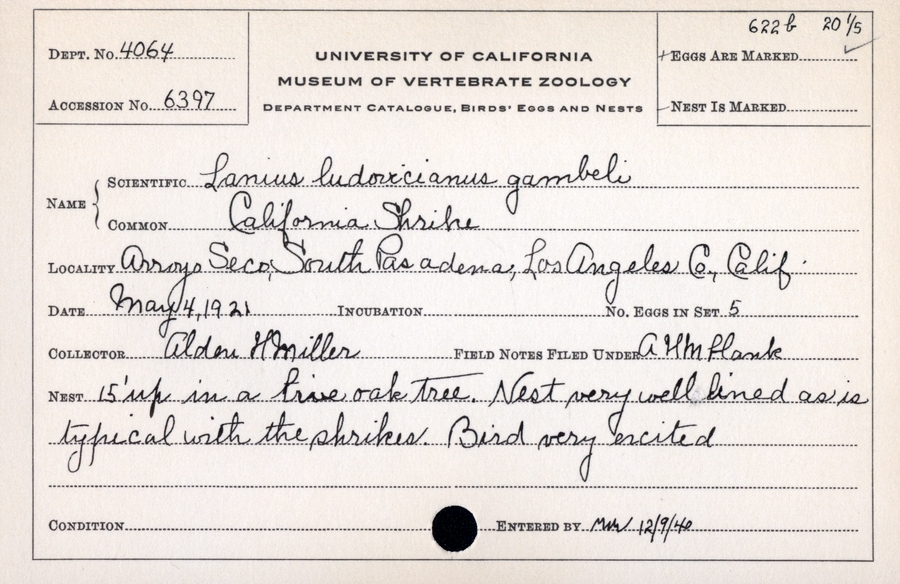 622b 20 1/5
DEPT. No. 4064
UNIVERSITY OF CALIFORNIA
EGGS ARE MARKED
MUSEUM OF VERTEBRATE ZOOLOGY
ACCESSION No. 6397
DEPARTMENT CATALOGUE, BIRDS' EGGS AND NESTS
NEST IS MARKED
NAME
SCIENTIFIC Lanius ludovicianus gambeli
COMMON California Shrike
LOCALITY Arroyo Seco, South Pasadena, Los Angeles Co., Calif.
DATE May 4, 1921 INCUBATION No. EGGS IN SET 5
COLLECTOR Alden H Miller FIELD NOTES FILED UNDER A H M
NEST 15' up in a live oak tree. Nest very well lined as is
typical with the shrikes. Bird very excited
CONDITION ENTERED BY 12/9/40